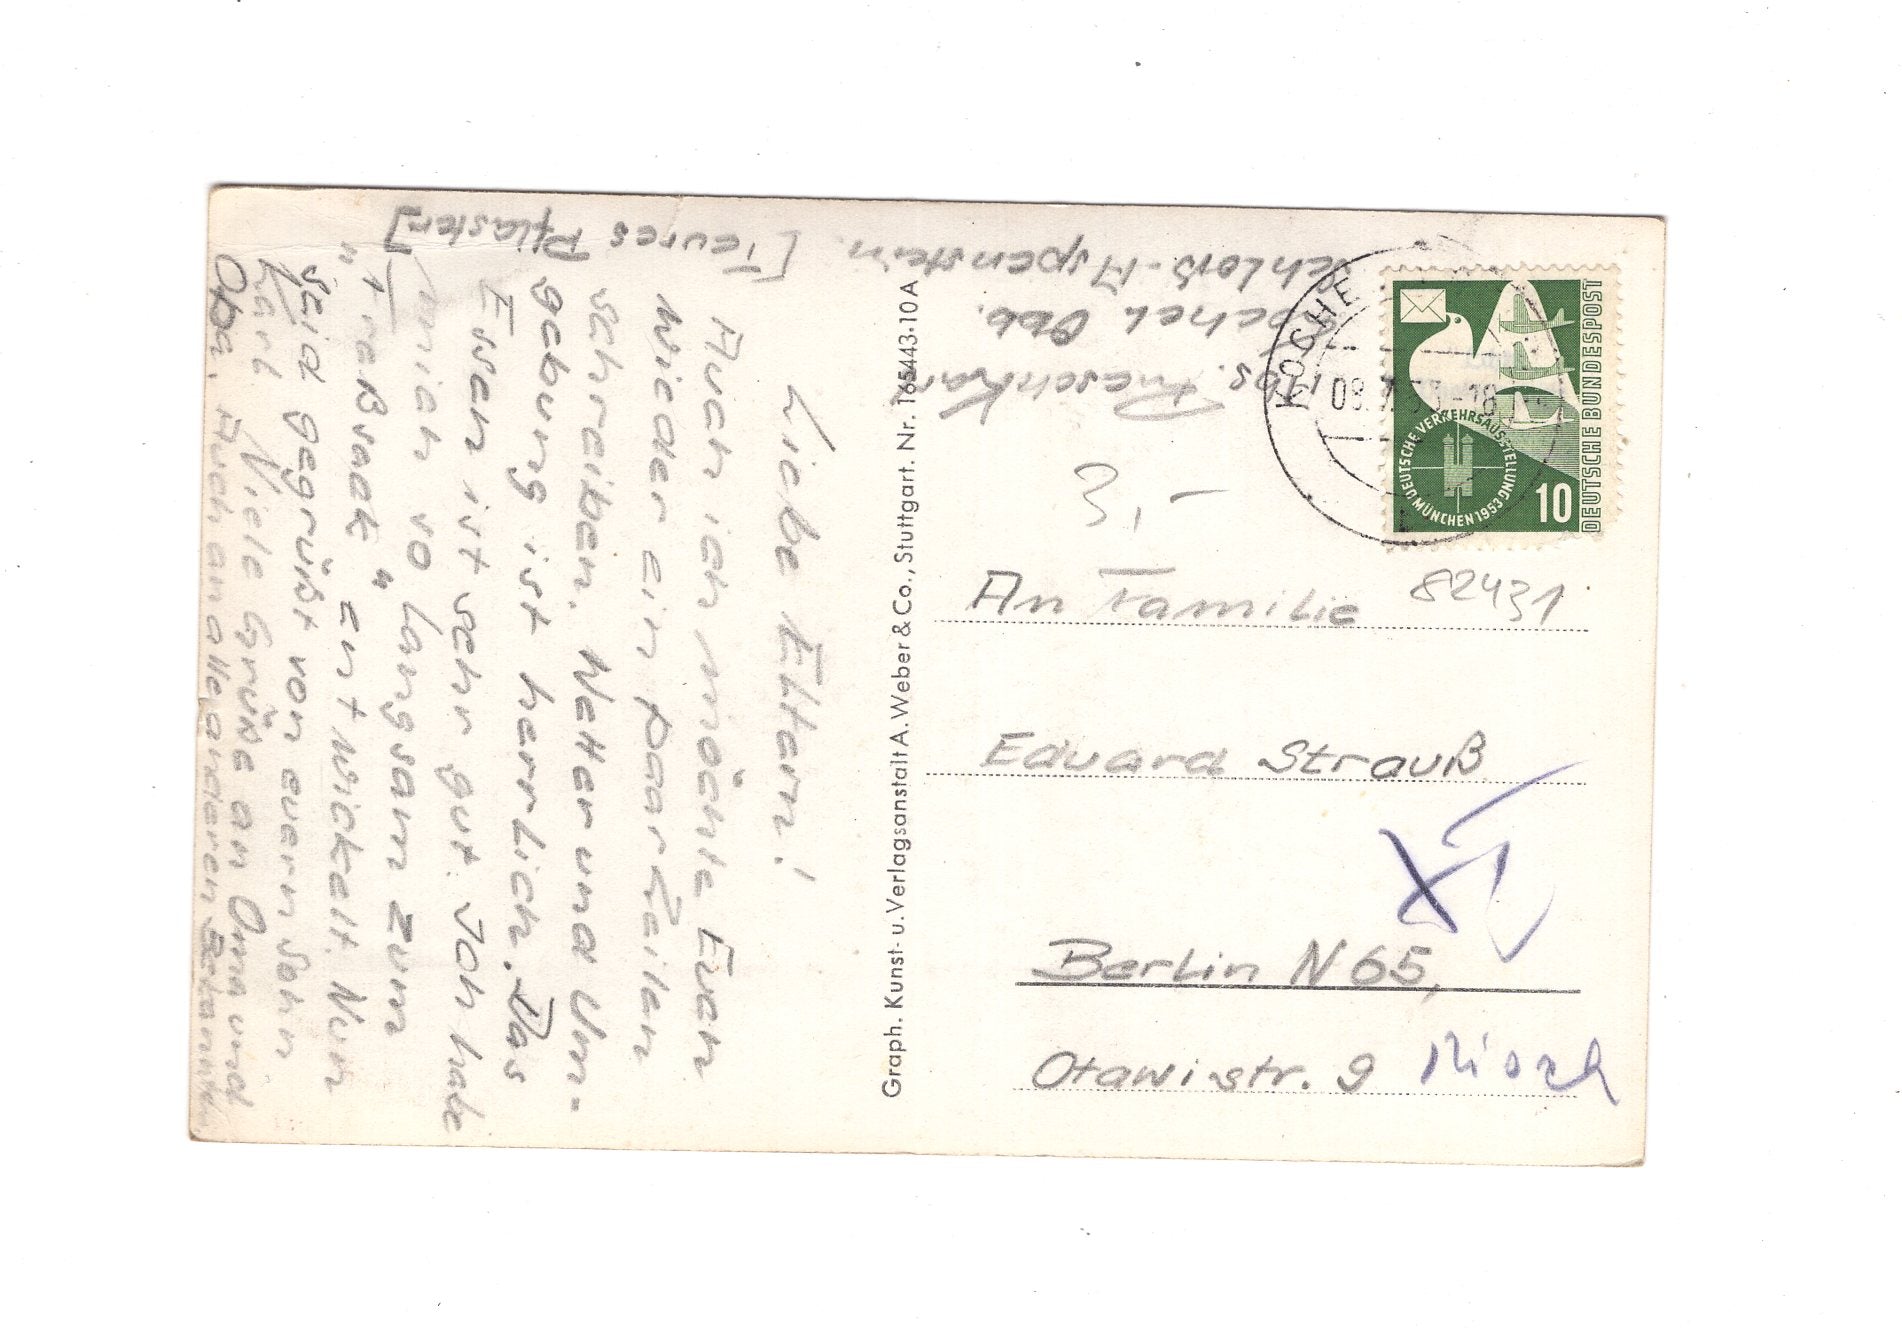 Liebe Eltern!
Auch ich möchte Euch
wieder ein paar Zeilen
schreiben. Wetter und Um-
gebung ist herrlich. Das
Essen ist sehr gut. Ich habe
mich so langsam zum
"Fraßsack" entwickelt. Nun
seid gegrüßt von euerm Sohn
Karl Viele Grüße an Oma und
Opa. Auch an alle anderen Bekannten
[Teures Pflaster]
Graph. Kunst- u. Verlagsanstalt A. Weber & Co., Stuttgart. Nr. 165443-10 A
Kochel Obb.
Schloß-Aspenstein
KOCHE
08.7.53-18
DEUTSCHE VERKEHRSAUSSTELLUNG
MÜNCHEN 1953
10
DEUTSCHE BUNDESPOST
3,-
82431
An Familie
Eduard Strauß
Berlin N 65,
Otawistr. 9